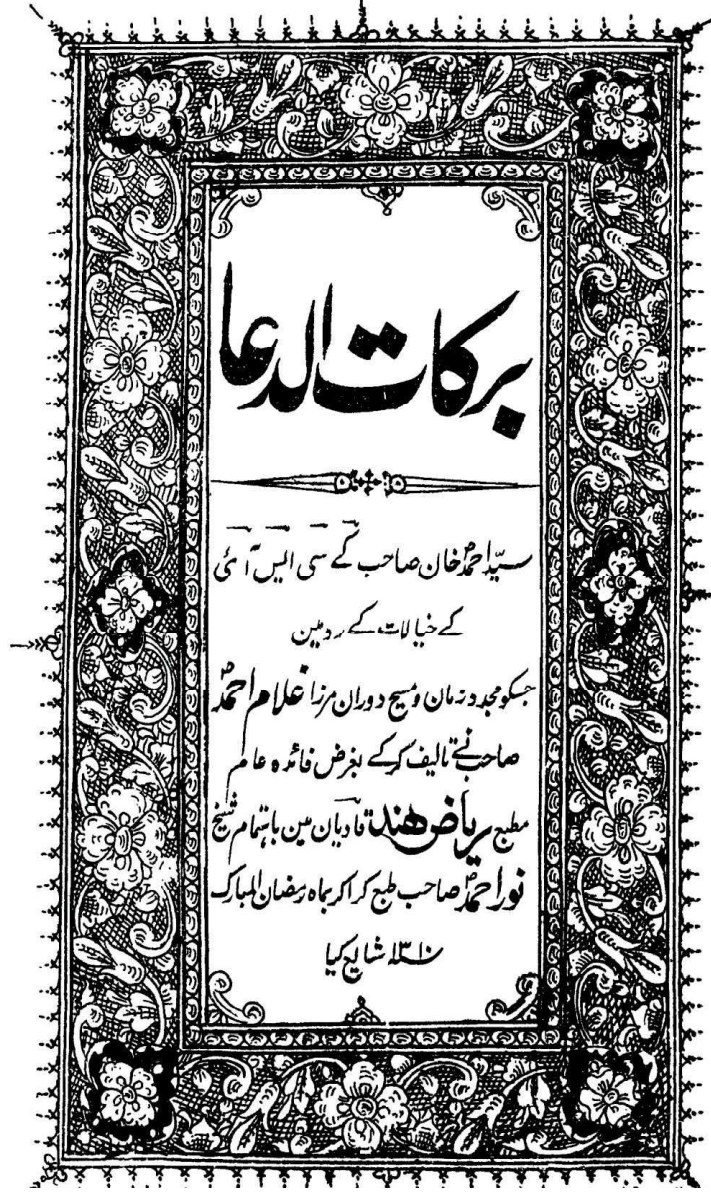 برکات الدعا
سیّد احمدؐ خان صاحب کے سی ایس آئی
کے خیالات کے رد مین
جسکو مجدد زمان و مسیح دوران مرزا غلام احمدؐ
صاحب نے تالیف کرکے بغرض فائدہ عام
مطبع ریاض ھند قادیان مین باہتمام شیخ
نور احمدؐ صاحب طبع کرا کر بماہ رمضان المبارک
۱۳۱۰ شایع کیا